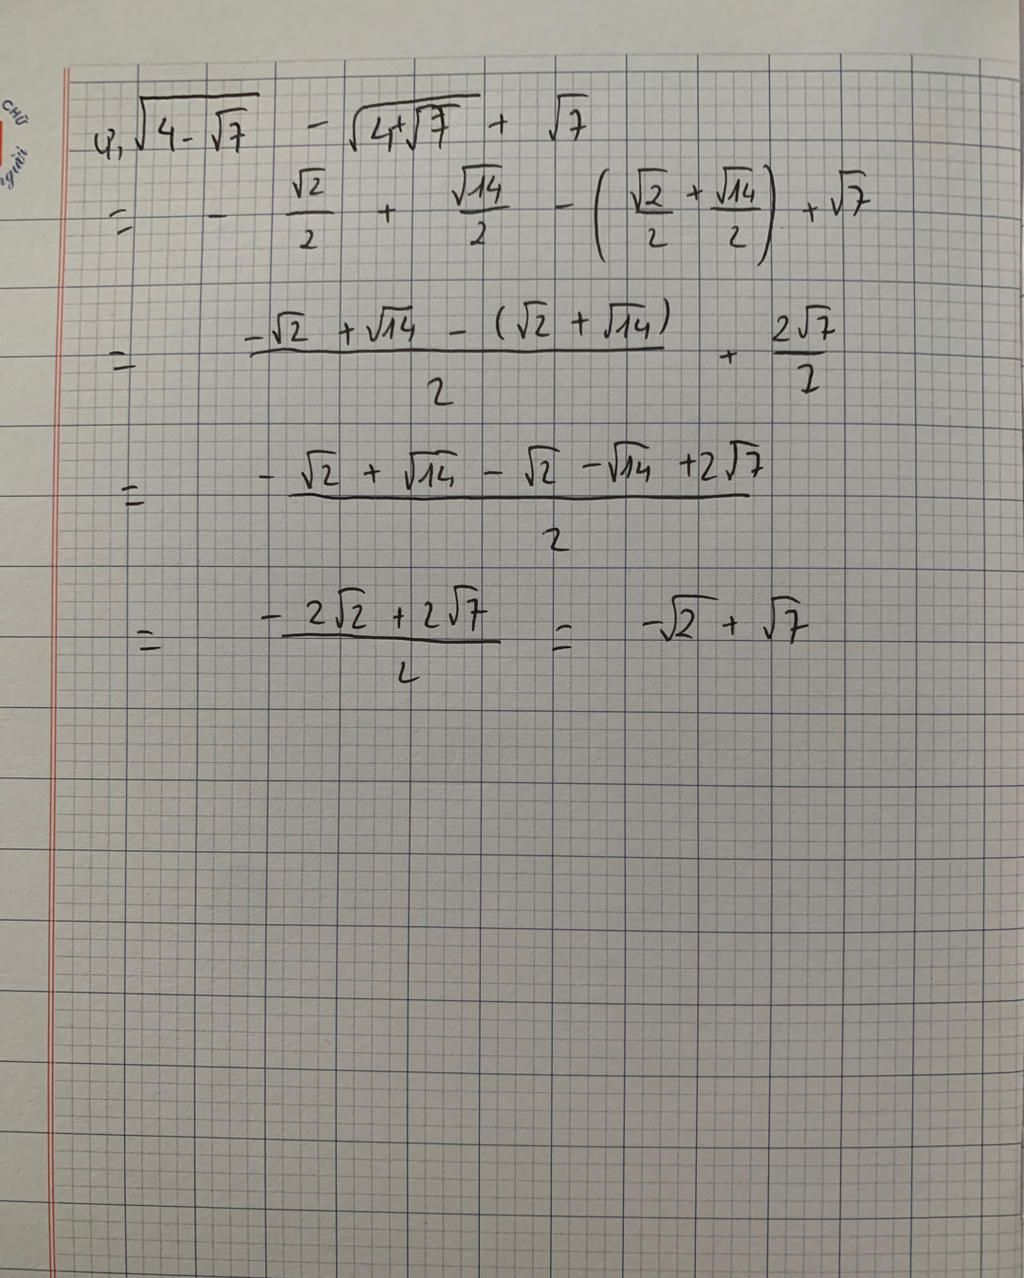 CHỮ
người
4, √(4-√7) - √(4+√7) + √7
= - √2/2 + √14/2 - (√2/2 + √14/2) + √7
= (-√2 + √14 - (√2 + √14))/2 + 2√7/2
= (-√2 + √14 - √2 - √14 + 2√7)/2
= (-2√2 + 2√7)/2 = -√2 + √7